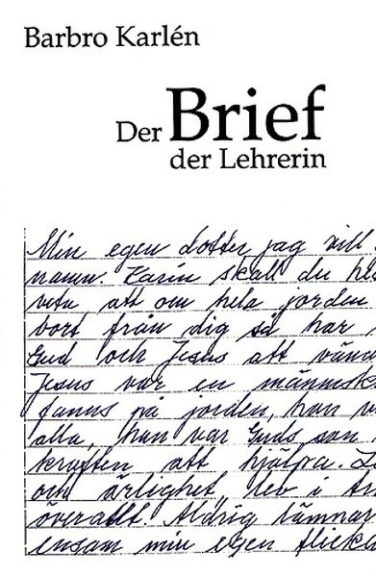 Barbro Karlén
Der Brief
der Lehrerin
Min egen dotter, jag vill
namn. Karin skall du
veta att om hela jorden
bort från dig så har
Gud och Jesus att
Jesus var en
fanns på jorden, han
alla, han var Guds son
kraften att hjälpa.
och ärlighet, lev i
överallt. Aldrig lämnar
ensam min egen flicka